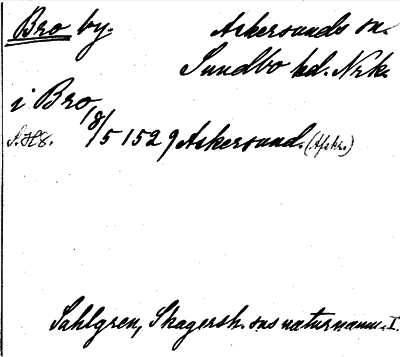 Bro by.
Askersunds sn.
Sundbo hd. Nrk.
i Bro
18/5 1529 Askersund. (Afskr.)
Sahlgren, Skagersh. sns naturnamn. I.